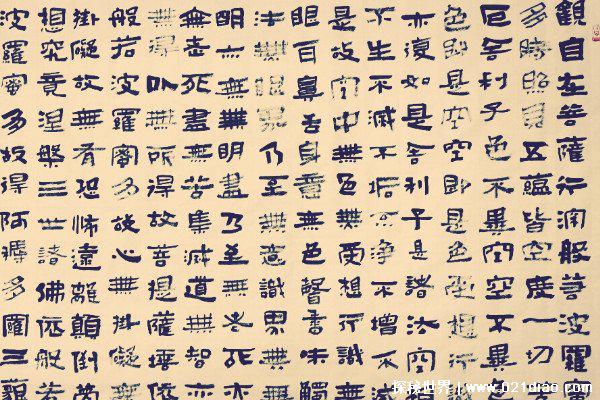 觀自在菩薩行深般若波羅蜜
多時照見五蘊皆空度一切
厄舍利子色不異空空不異
色即是空空即是色受想行
亦復如是舍利子是諸法空
不生不滅不垢不淨不增不減
是故空中無色無受想行識無
眼耳鼻舌身意無色聲香味觸
法無眼界乃至無意識界無無
明亦無無明盡乃至無老死亦
無老死盡無苦集滅道無智亦
無得以無所得故菩提薩埵依
般若波羅蜜多故心無掛礙無
掛礙故無有恐怖遠離顛倒夢
想究竟涅槃三世諸佛依般若
波羅蜜多故得阿耨多羅三藐
探秘世界 | www.021diao.com